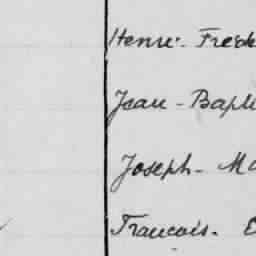 Henri- Frede
Jean - Bapti
Joseph- Ma
Francois- E